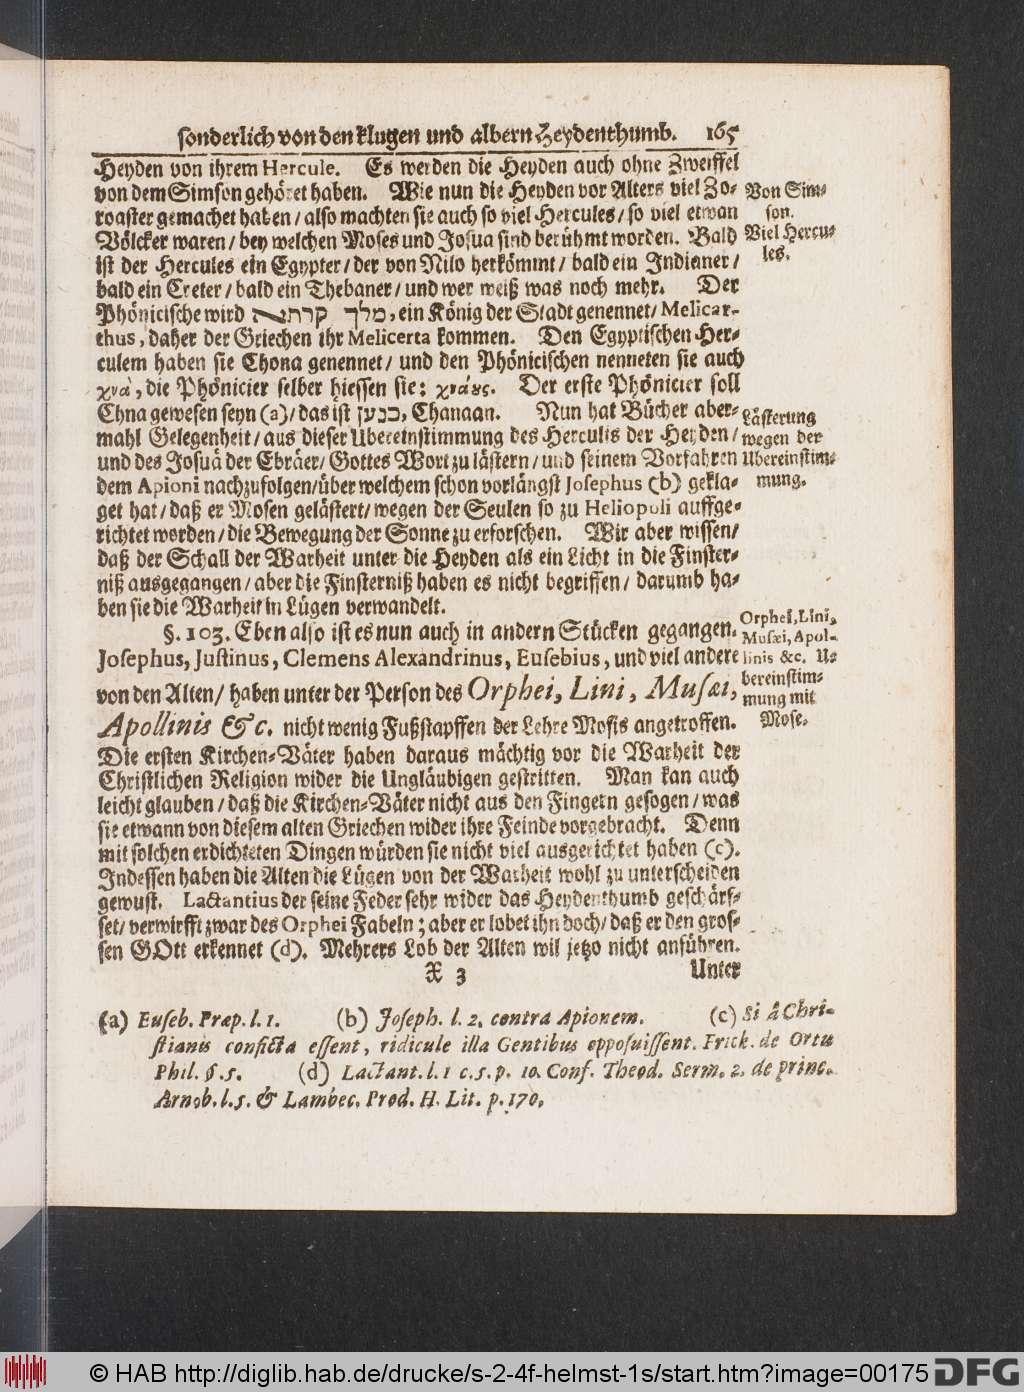 sonderlich von den klugen und albern Heydenthumb. 165
Heyden von ihrem Hercule. Es werden die Heyden auch ohne Zweiffel
von dem Simson gehöret haben. Wie nun die Heyden vor Alters viel Zo-
roaster gemachet haben / also machten sie auch so viel Hercules / so viel etwan
Völcker waren / bey welchen Moses und Josua sind berühmt worden. Bald
ist der Hercules ein Egypter / der von Nilo herkömmt / bald ein Indianer /
bald ein Creter / bald ein Thebaner / und wer weiß was noch mehr. Der
Phönicische wird מלך קרתא, ein König der Stadt genennet / Melicar-
thus, daher der Griechen ihr Melicerta kommen. Den Egyptischen Her-
culem haben sie Chona genennet / und den Phönicischen nenneten sie auch
χνᾶ, die Phönicier selber hiessen sie: χνάους. Der erste Phönicier soll
Chna gewesen seyn (a) / das ist כנען, Chanaan. Nun hat Bücher aber-
mahl Gelegenheit / aus dieser Ubereinstimmung des Herculis der Heyden /
und des Josuä der Ebräer / Gottes Wort zu lästern / und seinem Vorfahren
dem Apioni nachzufolgen / über welchem schon vorlängst Josephus (b) gekla-
get hat / daß er Mosen gelästert / wegen der Seulen so zu Heliopoli auffge-
richtet worden / die Bewegung der Sonne zu erforschen. Wir aber wissen /
daß der Schall der Warheit unter die Heyden als ein Licht in die Finster-
niß ausgegangen / aber die Finsterniß haben es nicht begriffen / darumb ha-
ben sie die Warheit in Lügen verwandelt.
§. 103. Eben also ist es nun auch in andern Stücken gegangen.
Josephus, Justinus, Clemens Alexandrinus, Eusebius, und viel andere
von den Alten / haben unter der Person des Orphei, Lini, Musæi,
Apollinis &c. nicht wenig Fußstapffen der Lehre Mosis angetroffen.
Die ersten Kirchen-Väter haben daraus mächtig vor die Warheit der
Christlichen Religion wider die Ungläubigen gestritten. Man kan auch
leicht glauben / daß die Kirchen-Väter nicht aus den Fingern gesogen / was
sie etwann von diesem alten Griechen wider ihre Feinde vorgebracht. Denn
mit solchen erdichteten Dingen würden sie nicht viel ausgerichtet haben (c).
Indessen haben die Alten die Lügen von der Warheit wohl zu unterscheiden
gewust. Lactantius der seine Feder sehr wider das Heydenthumb geschärf-
fet / verwirfft zwar des Orphei Fabeln; aber er lobet ihn doch / daß er den gros-
sen GOtt erkennet (d). Mehrers Lob der Alten wil jetzo nicht anführen.
X 3 Unter
Von Sim-
son.
Viel Hercu-
les.
Lästerung
wegen der
Ubereinstim-
mung.
Orphei, Lini,
Musæi, Apol-
linis &c. U-
bereinstim-
mung mit
Mose.
(a) Euseb. Præp. l. 1. (b) Joseph. l. 2. contra Apionem. (c) Si â Chri-
stianis conficta essent, ridicule illa Gentibus opposuissent. Frick. de Ortu
Phil. §. 5. (d) Lactant. l. 1 c. 5. p. 10. Conf. Theod. Serm. 2. de princ.
Arnob. l. 5. & Lambec. Prod. H. Lit. p. 170.
© HAB http://diglib.hab.de/drucke/s-2-4f-helmst-1s/start.htm?image=00175 DFG